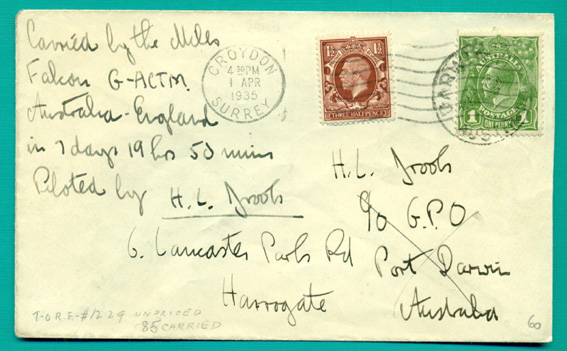 Carried by the Miles
Falcon G-ACTM
Australia-England
in 7 days 19 hrs 50 mins
Piloted by H. L. Brook
CROYDON
4 30PM
1 APR
1935
SURREY
1½ 1½
THREE HALFPENCE
1 POSTAGE 1
ONE PENNY
H. L. Brook
c/o G.P.O
Port Darwin
Australia
6. Lancaster Park Rd
Harrogate
T.O.R.F.-#1229 UNPRICED
85 CARRIED
60